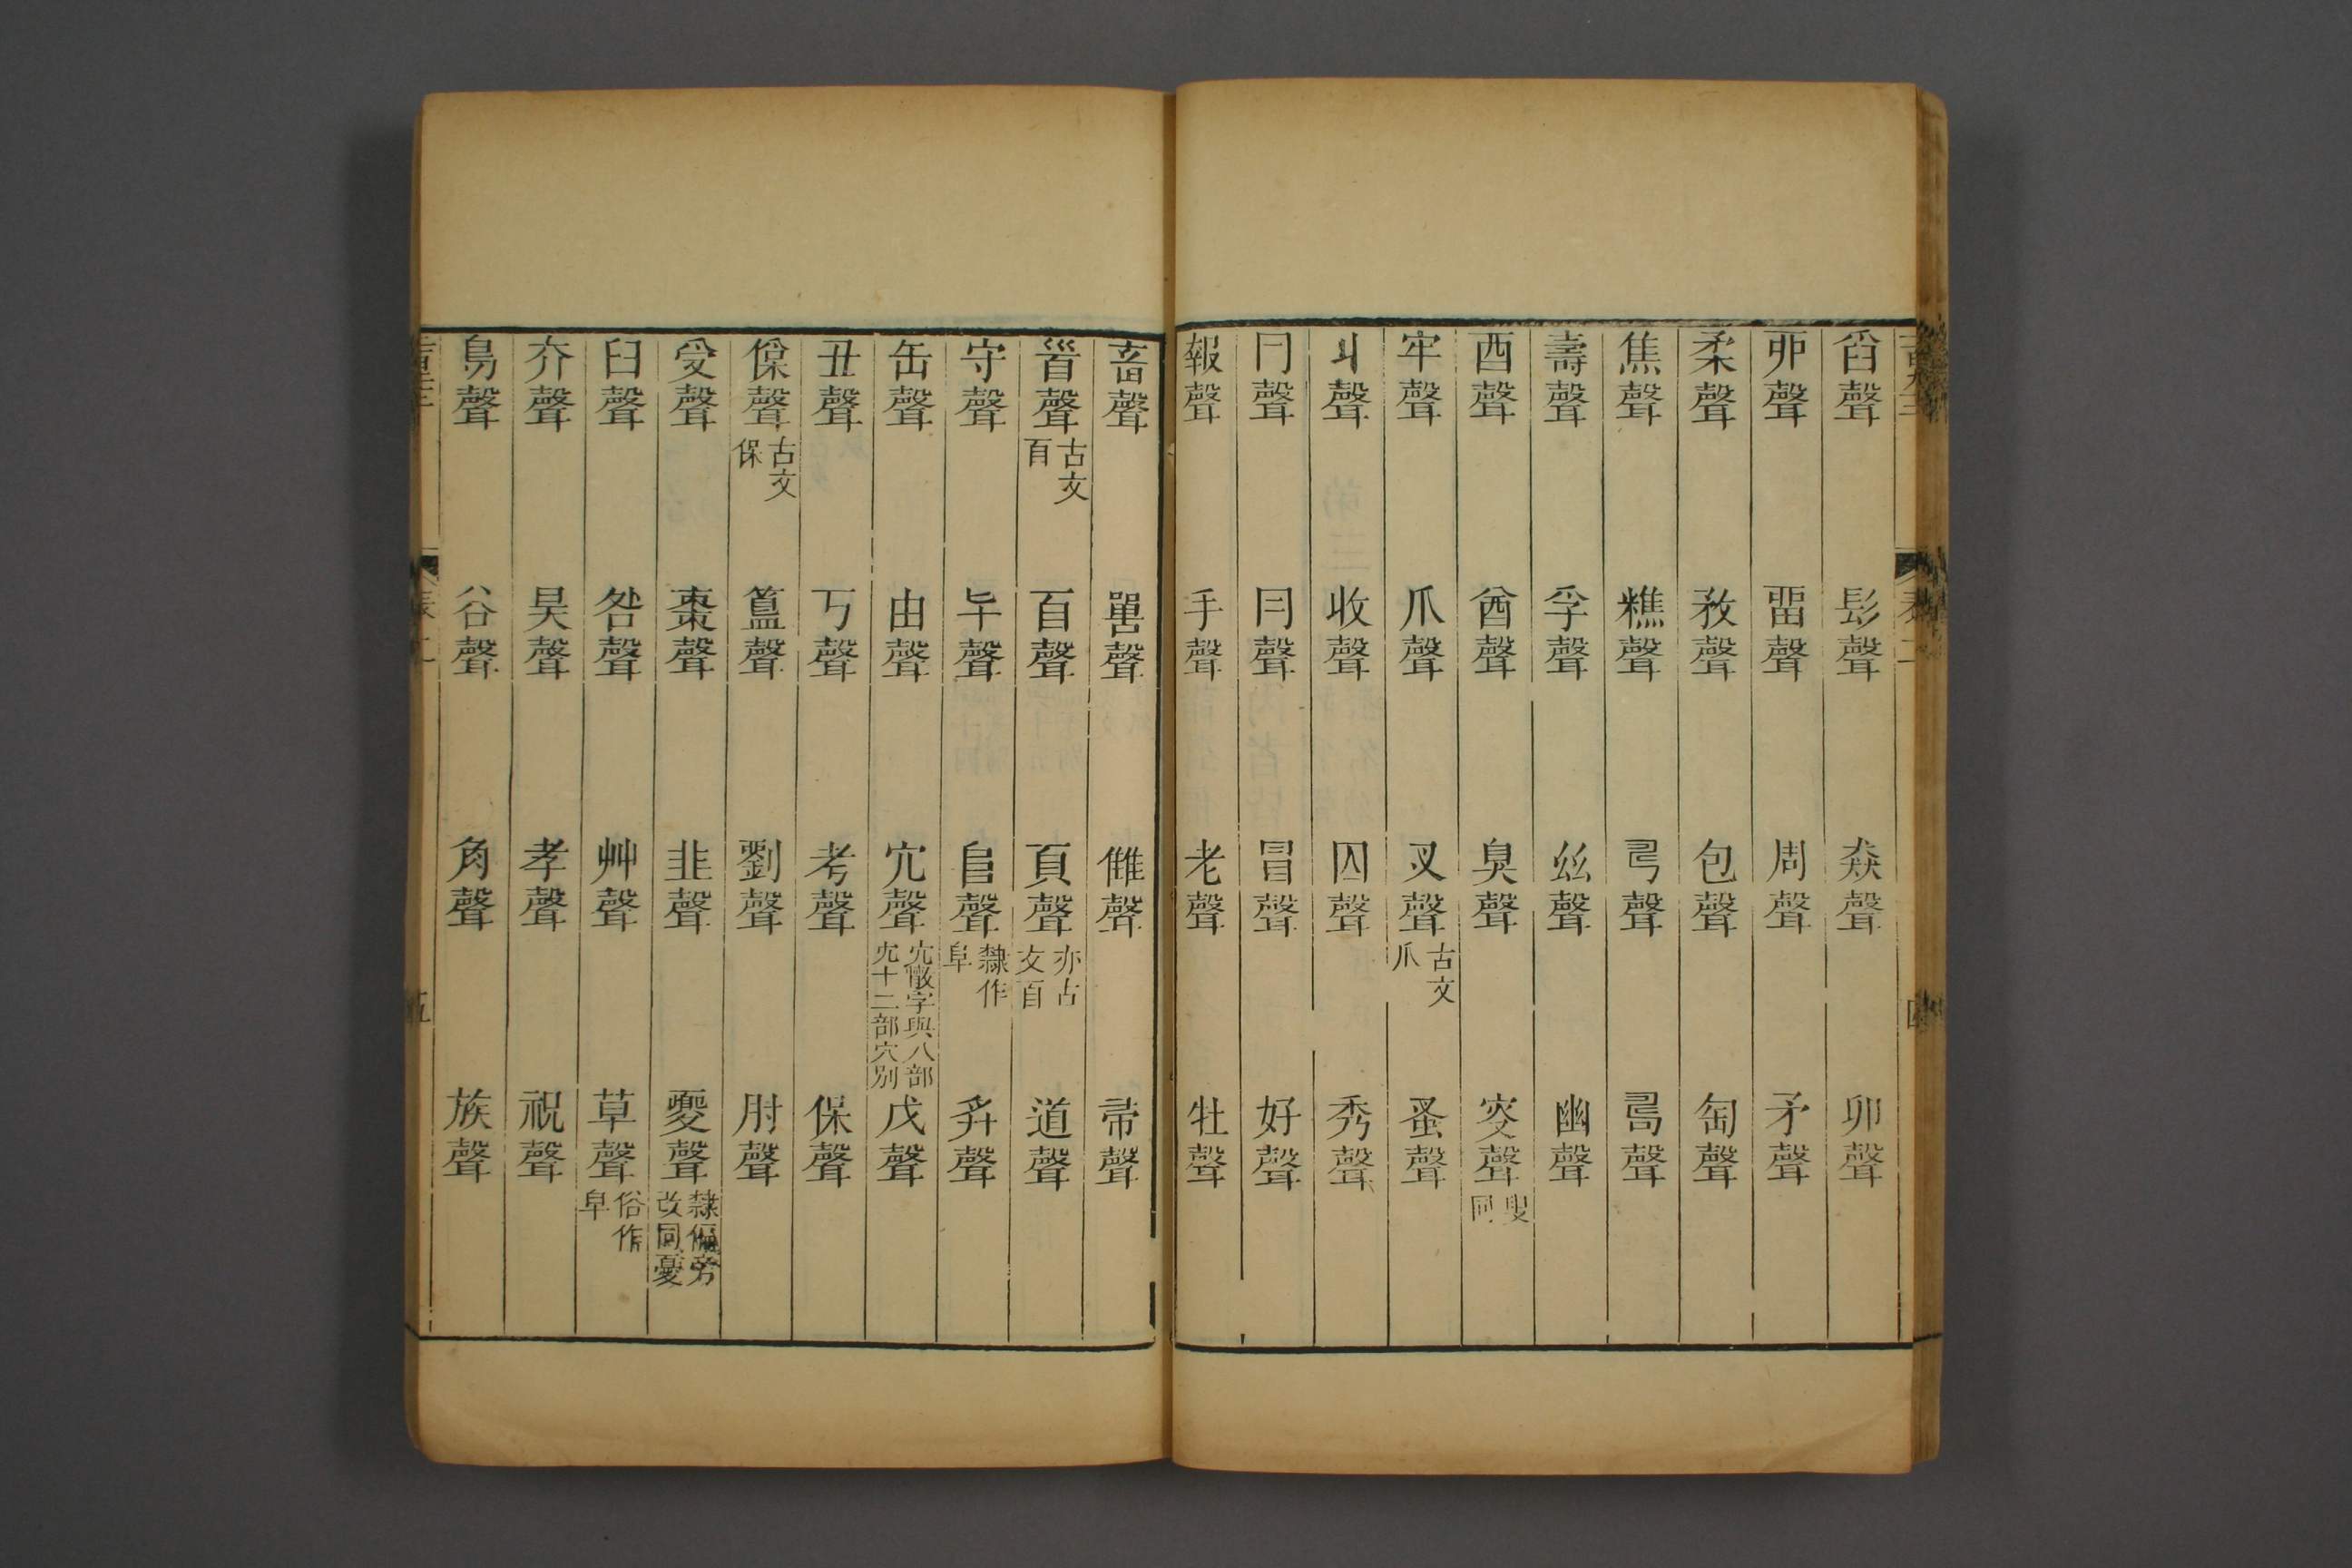 舀聲 髟聲 猋聲 卯聲
丣聲 畱聲 周聲 矛聲
柔聲 敄聲 包聲 匋聲
焦聲 糕聲 𢎗聲 𢑚聲
壽聲 孚聲 𢆶聲 幽聲
酉聲 酋聲 臭聲 叜聲 叟同
牢聲 爪聲 叉聲 古文爪 蚤聲
丩聲 收聲 囚聲 秀聲
冃聲 冃聲 冒聲 好聲
報聲 手聲 老聲 牡聲
畜聲 嘼聲 雔聲 帚聲
𩠐聲 古文𦣻 百聲 𩑋聲 亦古文百 道聲
守聲 午聲 𨸏聲 隸作阜 𢍏聲
缶聲 由聲 宂聲 宂散字與八部宂十二部穴別 戊聲
丑聲 丂聲 考聲 保聲
𠊻聲 古文保 簋聲 劉聲 肘聲
受聲 棗聲 韭聲 夒聲 隸偏旁改同憂
臼聲 咎聲 艸聲 草聲 俗作皁
夰聲 昊聲 孝聲 祝聲
鳥聲 谷聲 角聲 族聲
五